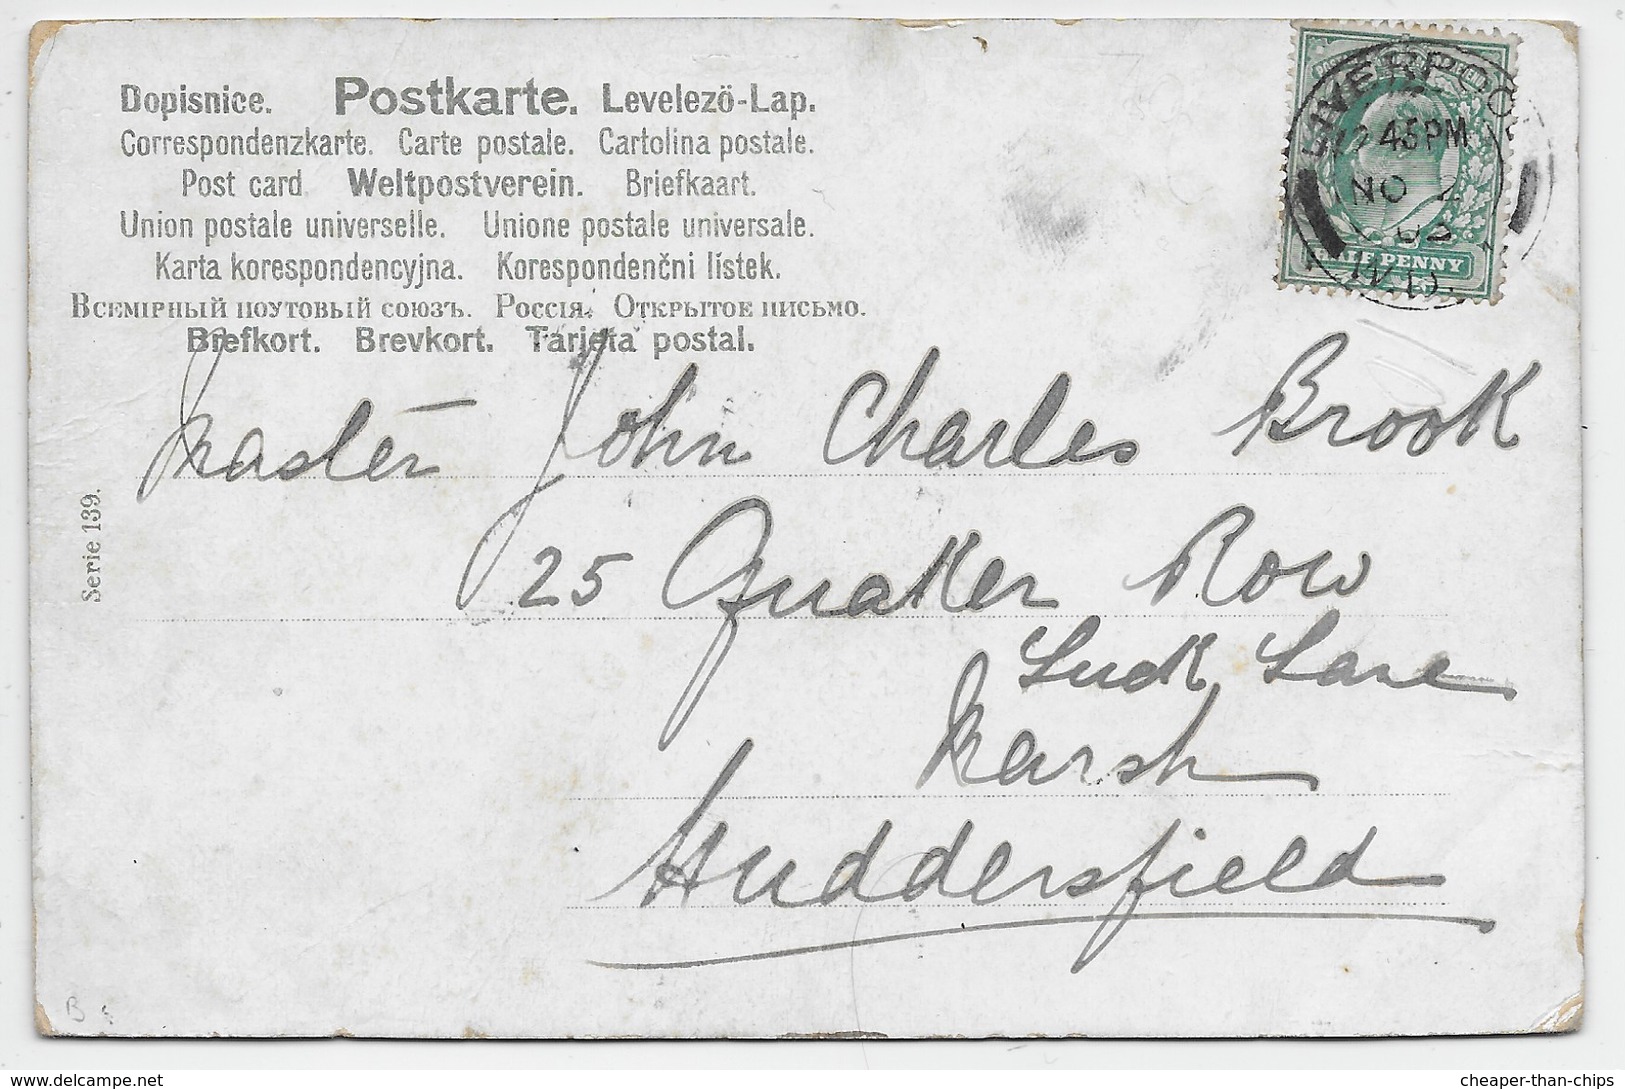 Dopisnice. Postkarte. Levelező-Lap.
Correspondenzkarte. Carte postale. Cartolina postale.
Post card Weltpostverein. Briefkaart.
Union postale universelle. Unione postale universale.
Karta korespondencyjna. Korespondenční lístek.
Всемірный поутовый союзъ. Россія. Открытое письмо.
Brefkort. Brevkort. Tarjeta postal.
LIVERPOOL
12 45 PM
NO 2
HALF PENNY
Master John Charles Brook
25 Quaker Row
Luck Lane
Marsh
Huddersfield
Serie 139.
B
cheaper-than-chips